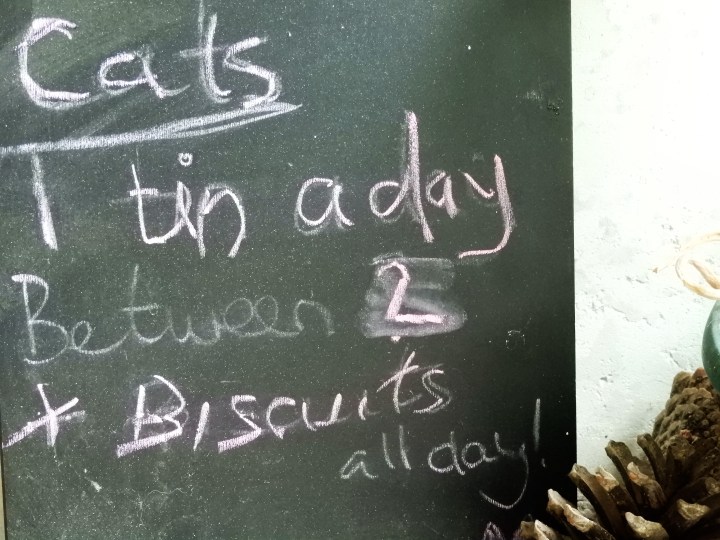 Cats
1 tin a day
Between 2
+ Biscuits
all day!